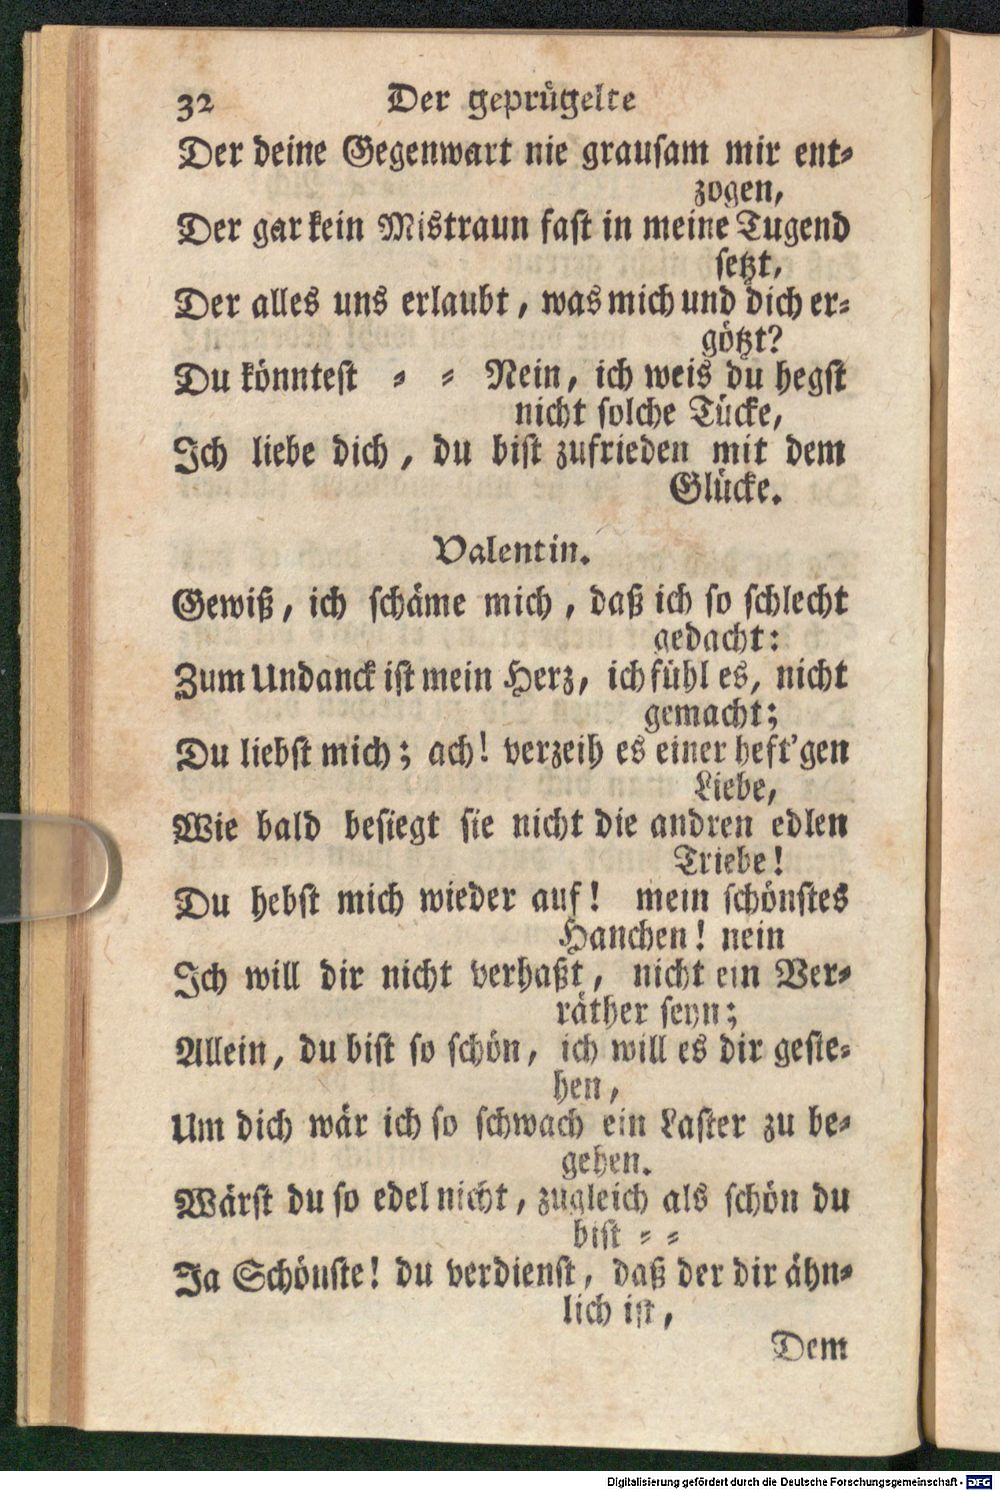 32 Der geprügelte
Der deine Gegenwart nie grausam mir ent⸗
zogen,
Der gar kein Mistraun fast in meine Tugend
setzt,
Der alles uns erlaubt, was mich und dich er⸗
götzt?
Du könntest ⸗ ⸗ Nein, ich weis du hegst
nicht solche Tücke,
Ich liebe dich, du bist zufrieden mit dem
Glücke.
Valentin.
Gewiß, ich schäme mich, daß ich so schlecht
gedacht:
Zum Undanck ist mein Herz, ich fühl es, nicht
gemacht;
Du liebst mich; ach! verzeih es einer heft'gen
Liebe,
Wie bald besiegt sie nicht die andren edlen
Triebe!
Du hebst mich wieder auf! mein schönstes
Hanchen! nein
Ich will dir nicht verhaßt, nicht ein Ver⸗
räther seyn;
Allein, du bist so schön, ich will es dir geste⸗
hen,
Um dich wär ich so schwach ein Laster zu be⸗
gehen.
Wärst du so edel nicht, zugleich als schön du
bist ⸗ ⸗
Ja Schönste! du verdienst, daß der dir ähn⸗
lich ist,
Dem
Digitalisierung gefördert durch die Deutsche Forschungsgemeinschaft - DFG